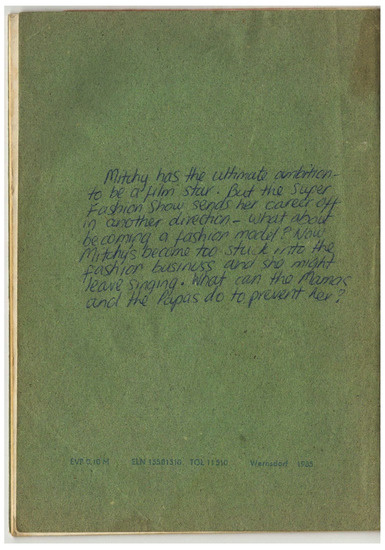 Mitchy has the ultimate ambition -
to be a film star. But the Super
Fashion Show sends her career off
in another direction - what about
becoming a fashion model? Now
Mitchy's become too stuck into the
fashion business and she might
leave singing. What can the Mamas
and the Papas do to prevent her?
EVP 0,10 M TGL Wermsdorf